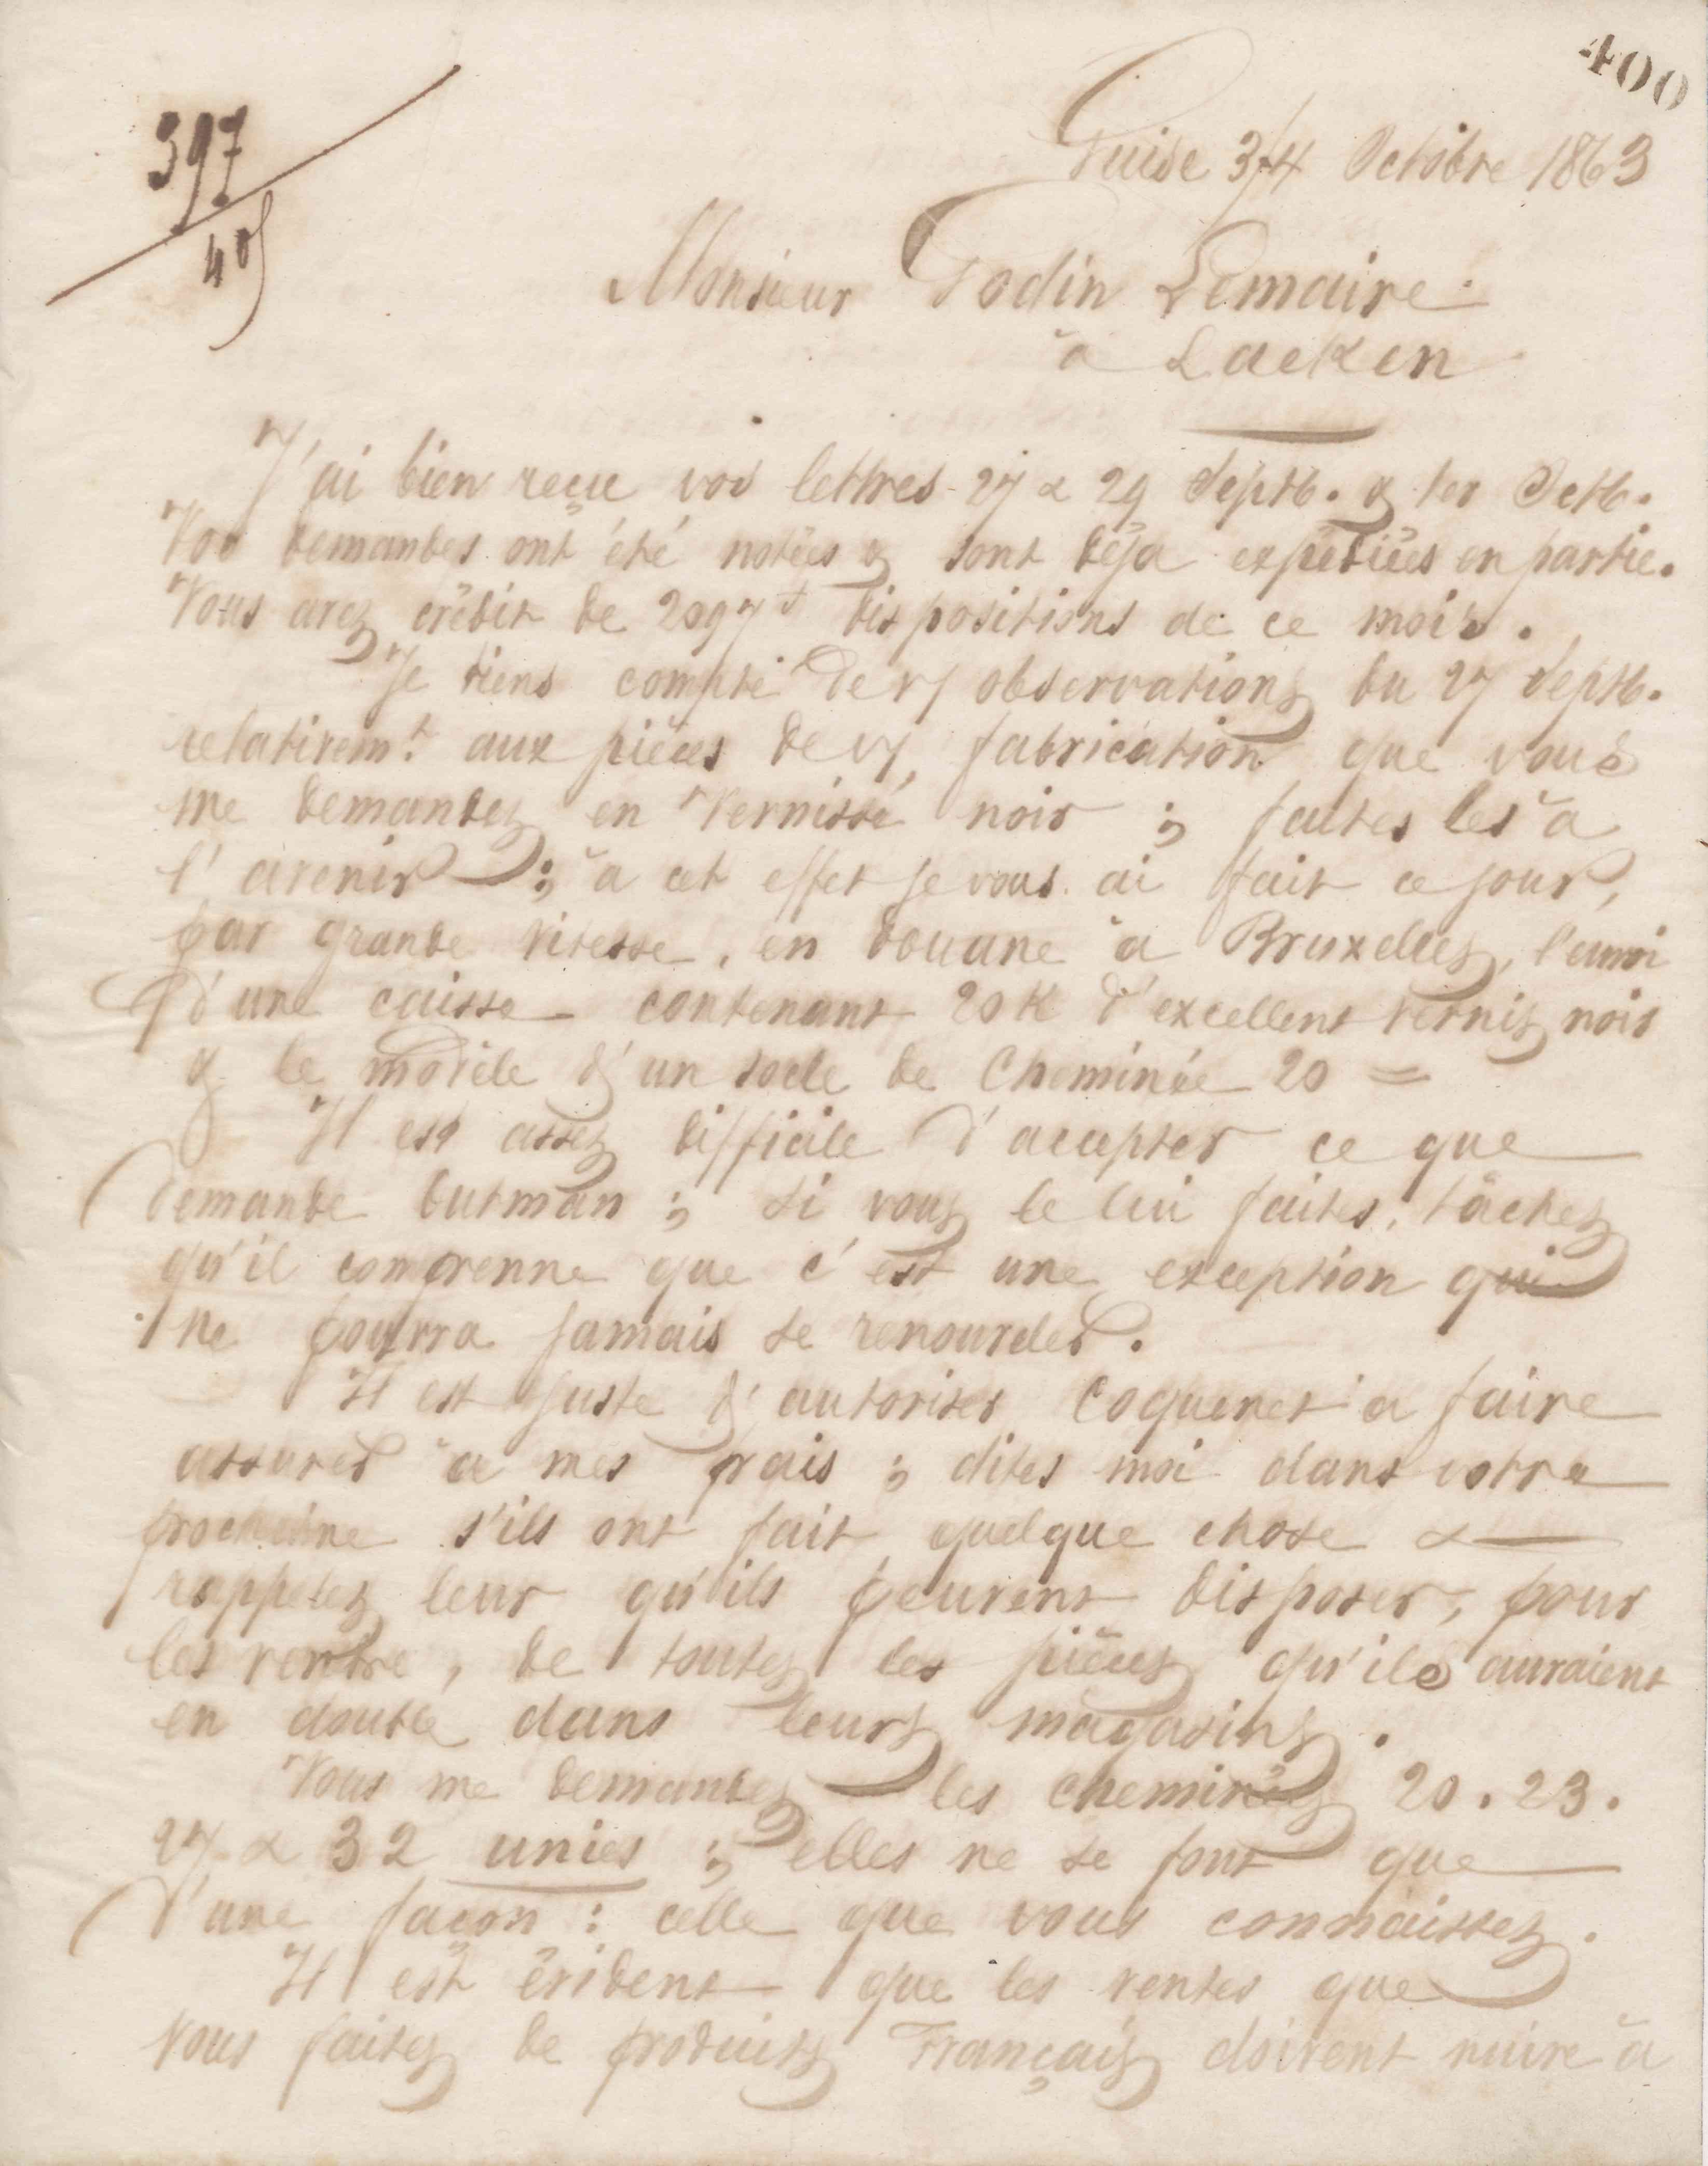 400
397
405
Guise 3/4 Octobre 1863
Monsieur Godin Lemaire
à Lacken
J'ai bien reçue vos lettres 27 & 29 Septb. & 1er Octb.
Vos demandes ont été notées & sont déja expédiées en partie.
Vous avez crédit de 2097 f dispositions de ce mois.
Je tiens compte de v/ observations du 27 Septb.
relativemt. aux pièces de v/ fabrication que vous
me demandez en vernissé noir ; faites les à
l'avenir ; à cet effet je vous ai fait ce jour,
par grande vitesse, en douane à Bruxelles, l'envoi
d'une caisse contenant 20 K d'excellent vernis noir
& le modèle d'un socle de Cheminée 20 =
Il est assez difficile d'accepter ce que
demande butman ; si vous le lui faites, tâchez
qu'il comprenne que c'est une exception qui
ne pourra jamais se renouveler.
Il est juste d'autoriser Coquenet à faire
assurer à mes frais ; dites moi dans votre
prochaine s'ils ont fait quelque chose &
rappelez leur qu'ils peuvent disposer, pour
les vendre, de toutes les pièces qu'ils auraient
en double dans leurs magasins.
Vous me demandez les cheminées 20. 23.
27 & 32 unies ; elles ne se font que
d'une façon : celle que vous connaissez.
Il est évident que les ventes que
vous faites de produits Français doivent nuire à